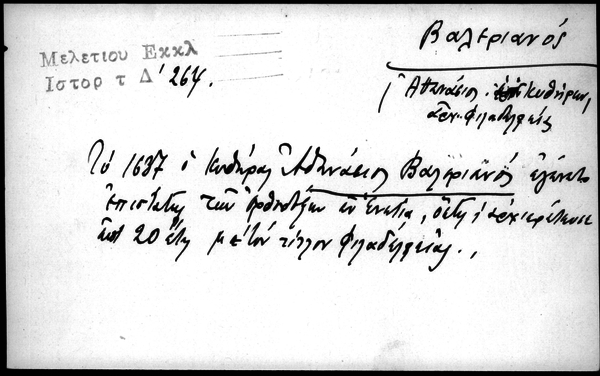 Μελετιου Εκκλ
Ιστορ τ Δ' 264.
Βαλεριανός
(Ἀθανάσιος Κυθήρων,
ἀρχ. Φιλαδελφείας
Τῷ 1637 ὁ Κυθήρων Ἀθανάσιος Βαλεριανός ἐγένετο
ἐπιστάτης τῶν ὀρθοδόξων ἐν Ἑνετίᾳ, ὅστις ἀρχιεράτευσε
ἐπί 20 ἔτη μέ τόν τίτλον Φιλαδελφείας.